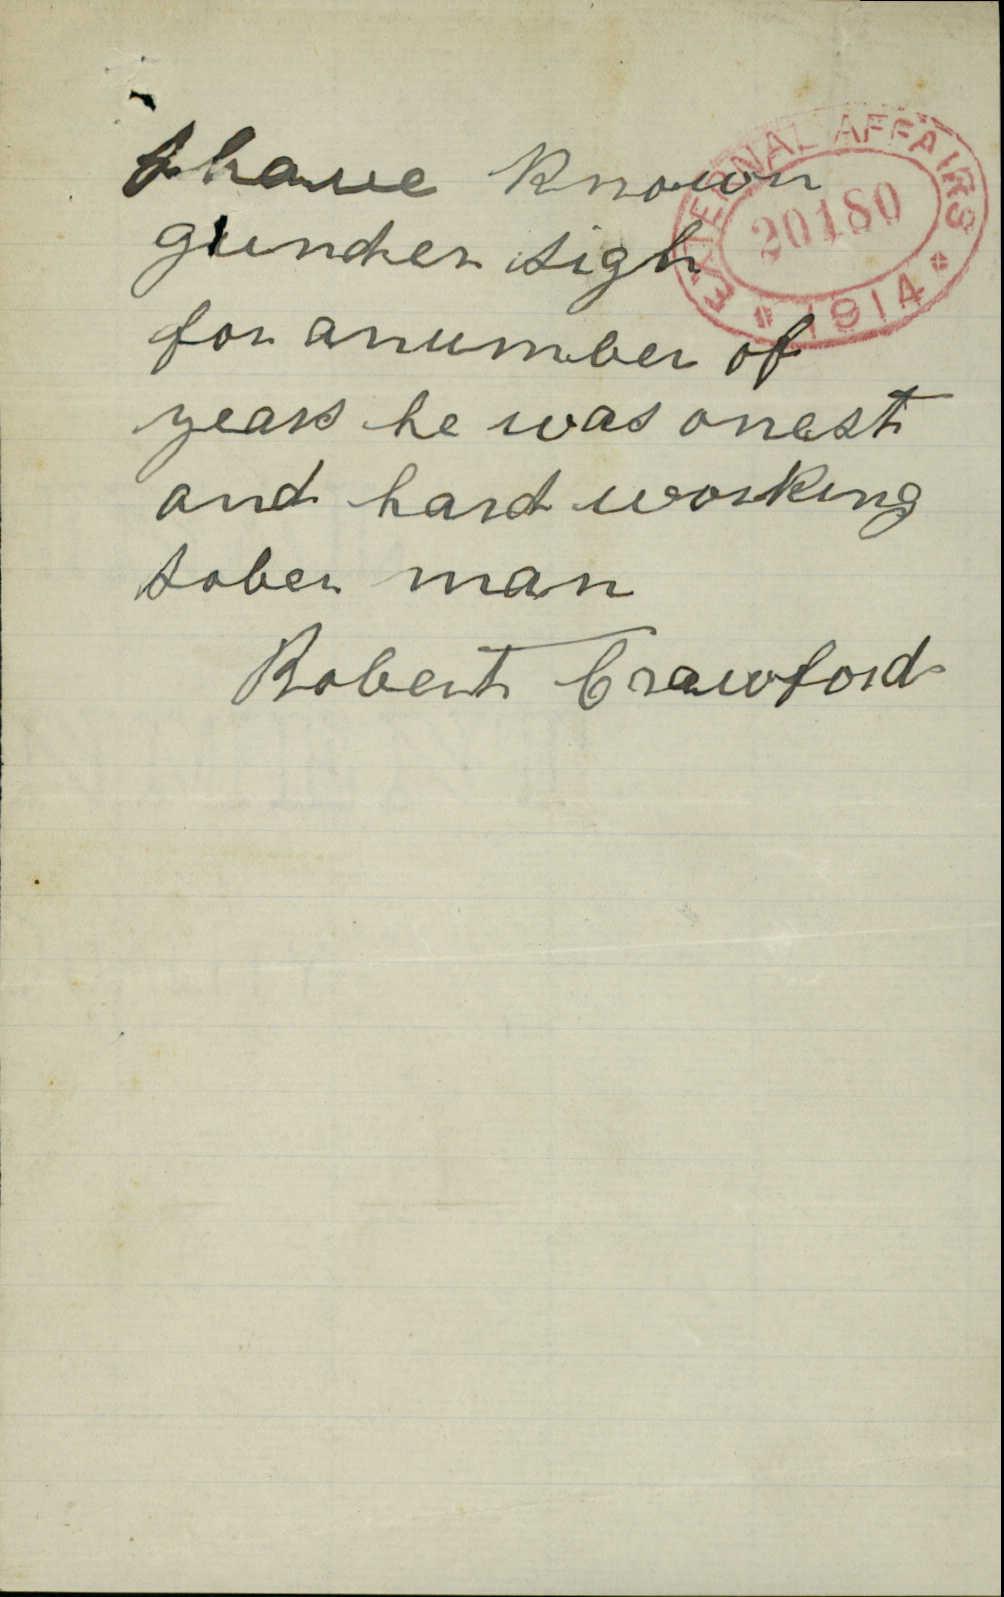 I have known
EXTERNAL AFFAIRS
20180
1914
gunder sigh
for anumber of
years he was onest
and hard working
sober man
Robert Crawford